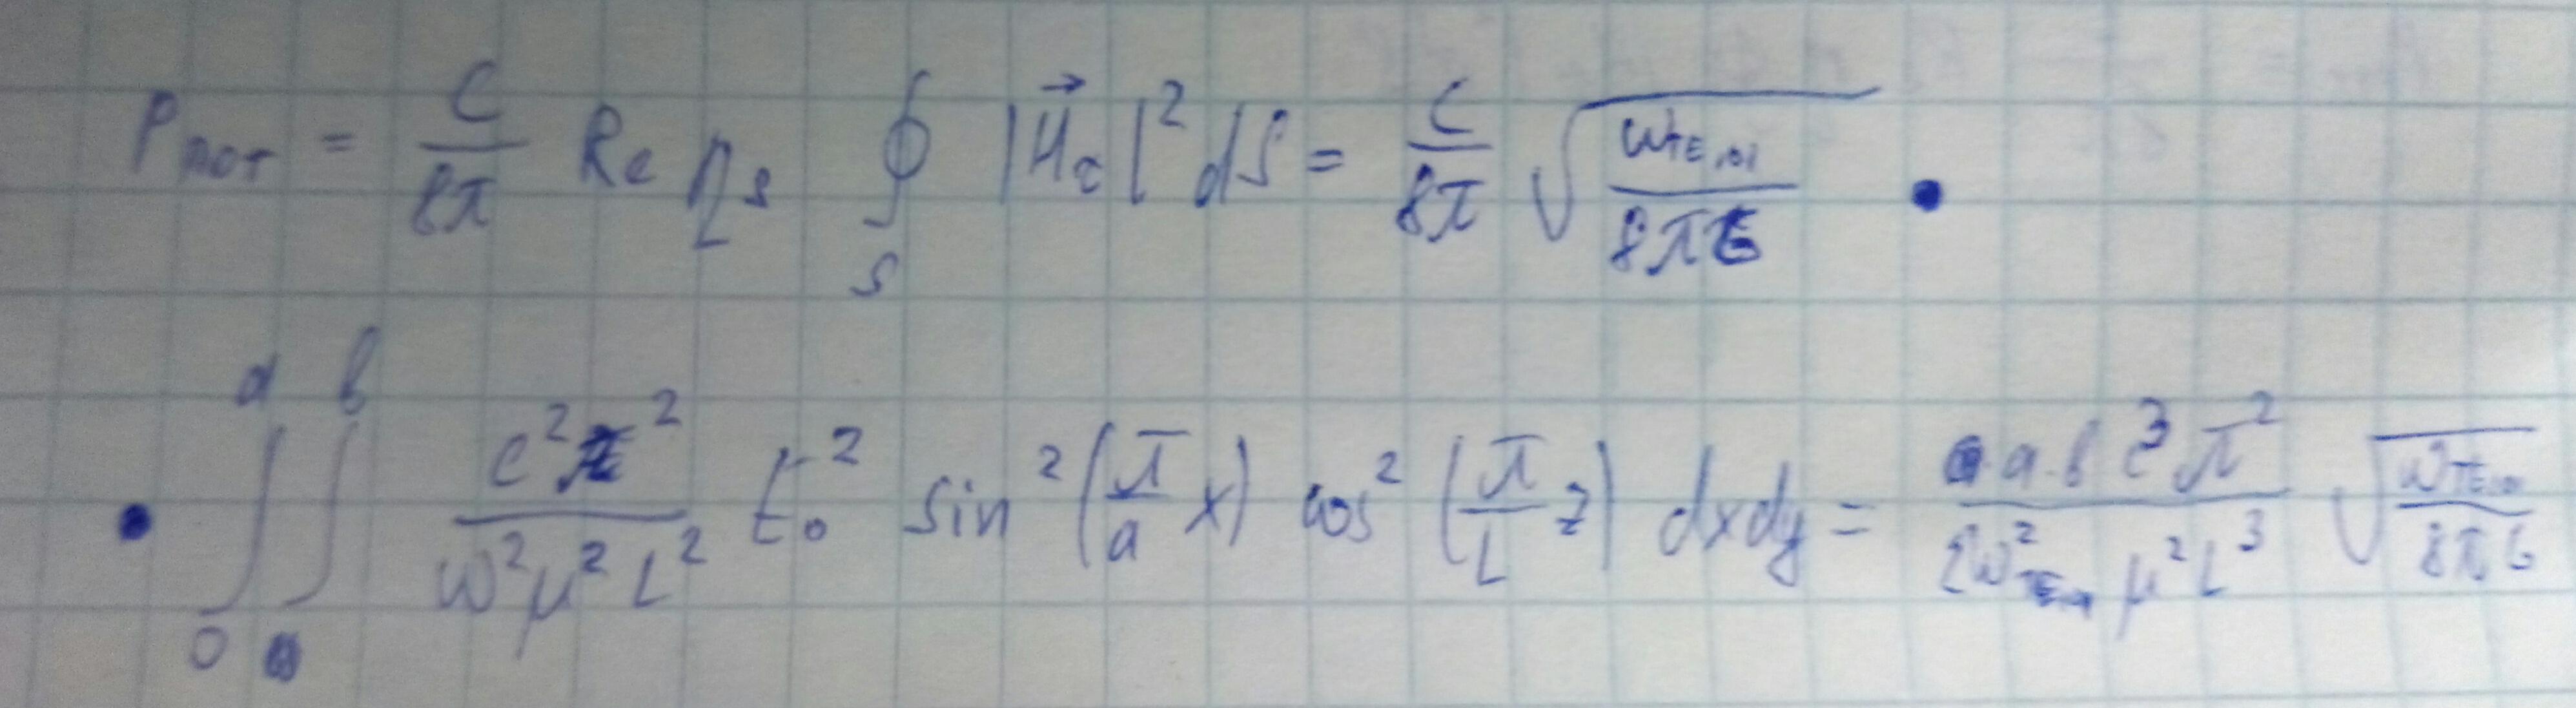 Pпот = c/8π Re ηs ∮S |H⃗τ|² dS = c/8π √(ωTE101/8πσ) •
• ∫0^a ∫0^b c²π²/ω²μ²L² E0² sin²(π/a x) cos²(π/L z) dxdy = a·b c³π²/2ω²TE101 μ²L³ √(ωTE101/8πσ)